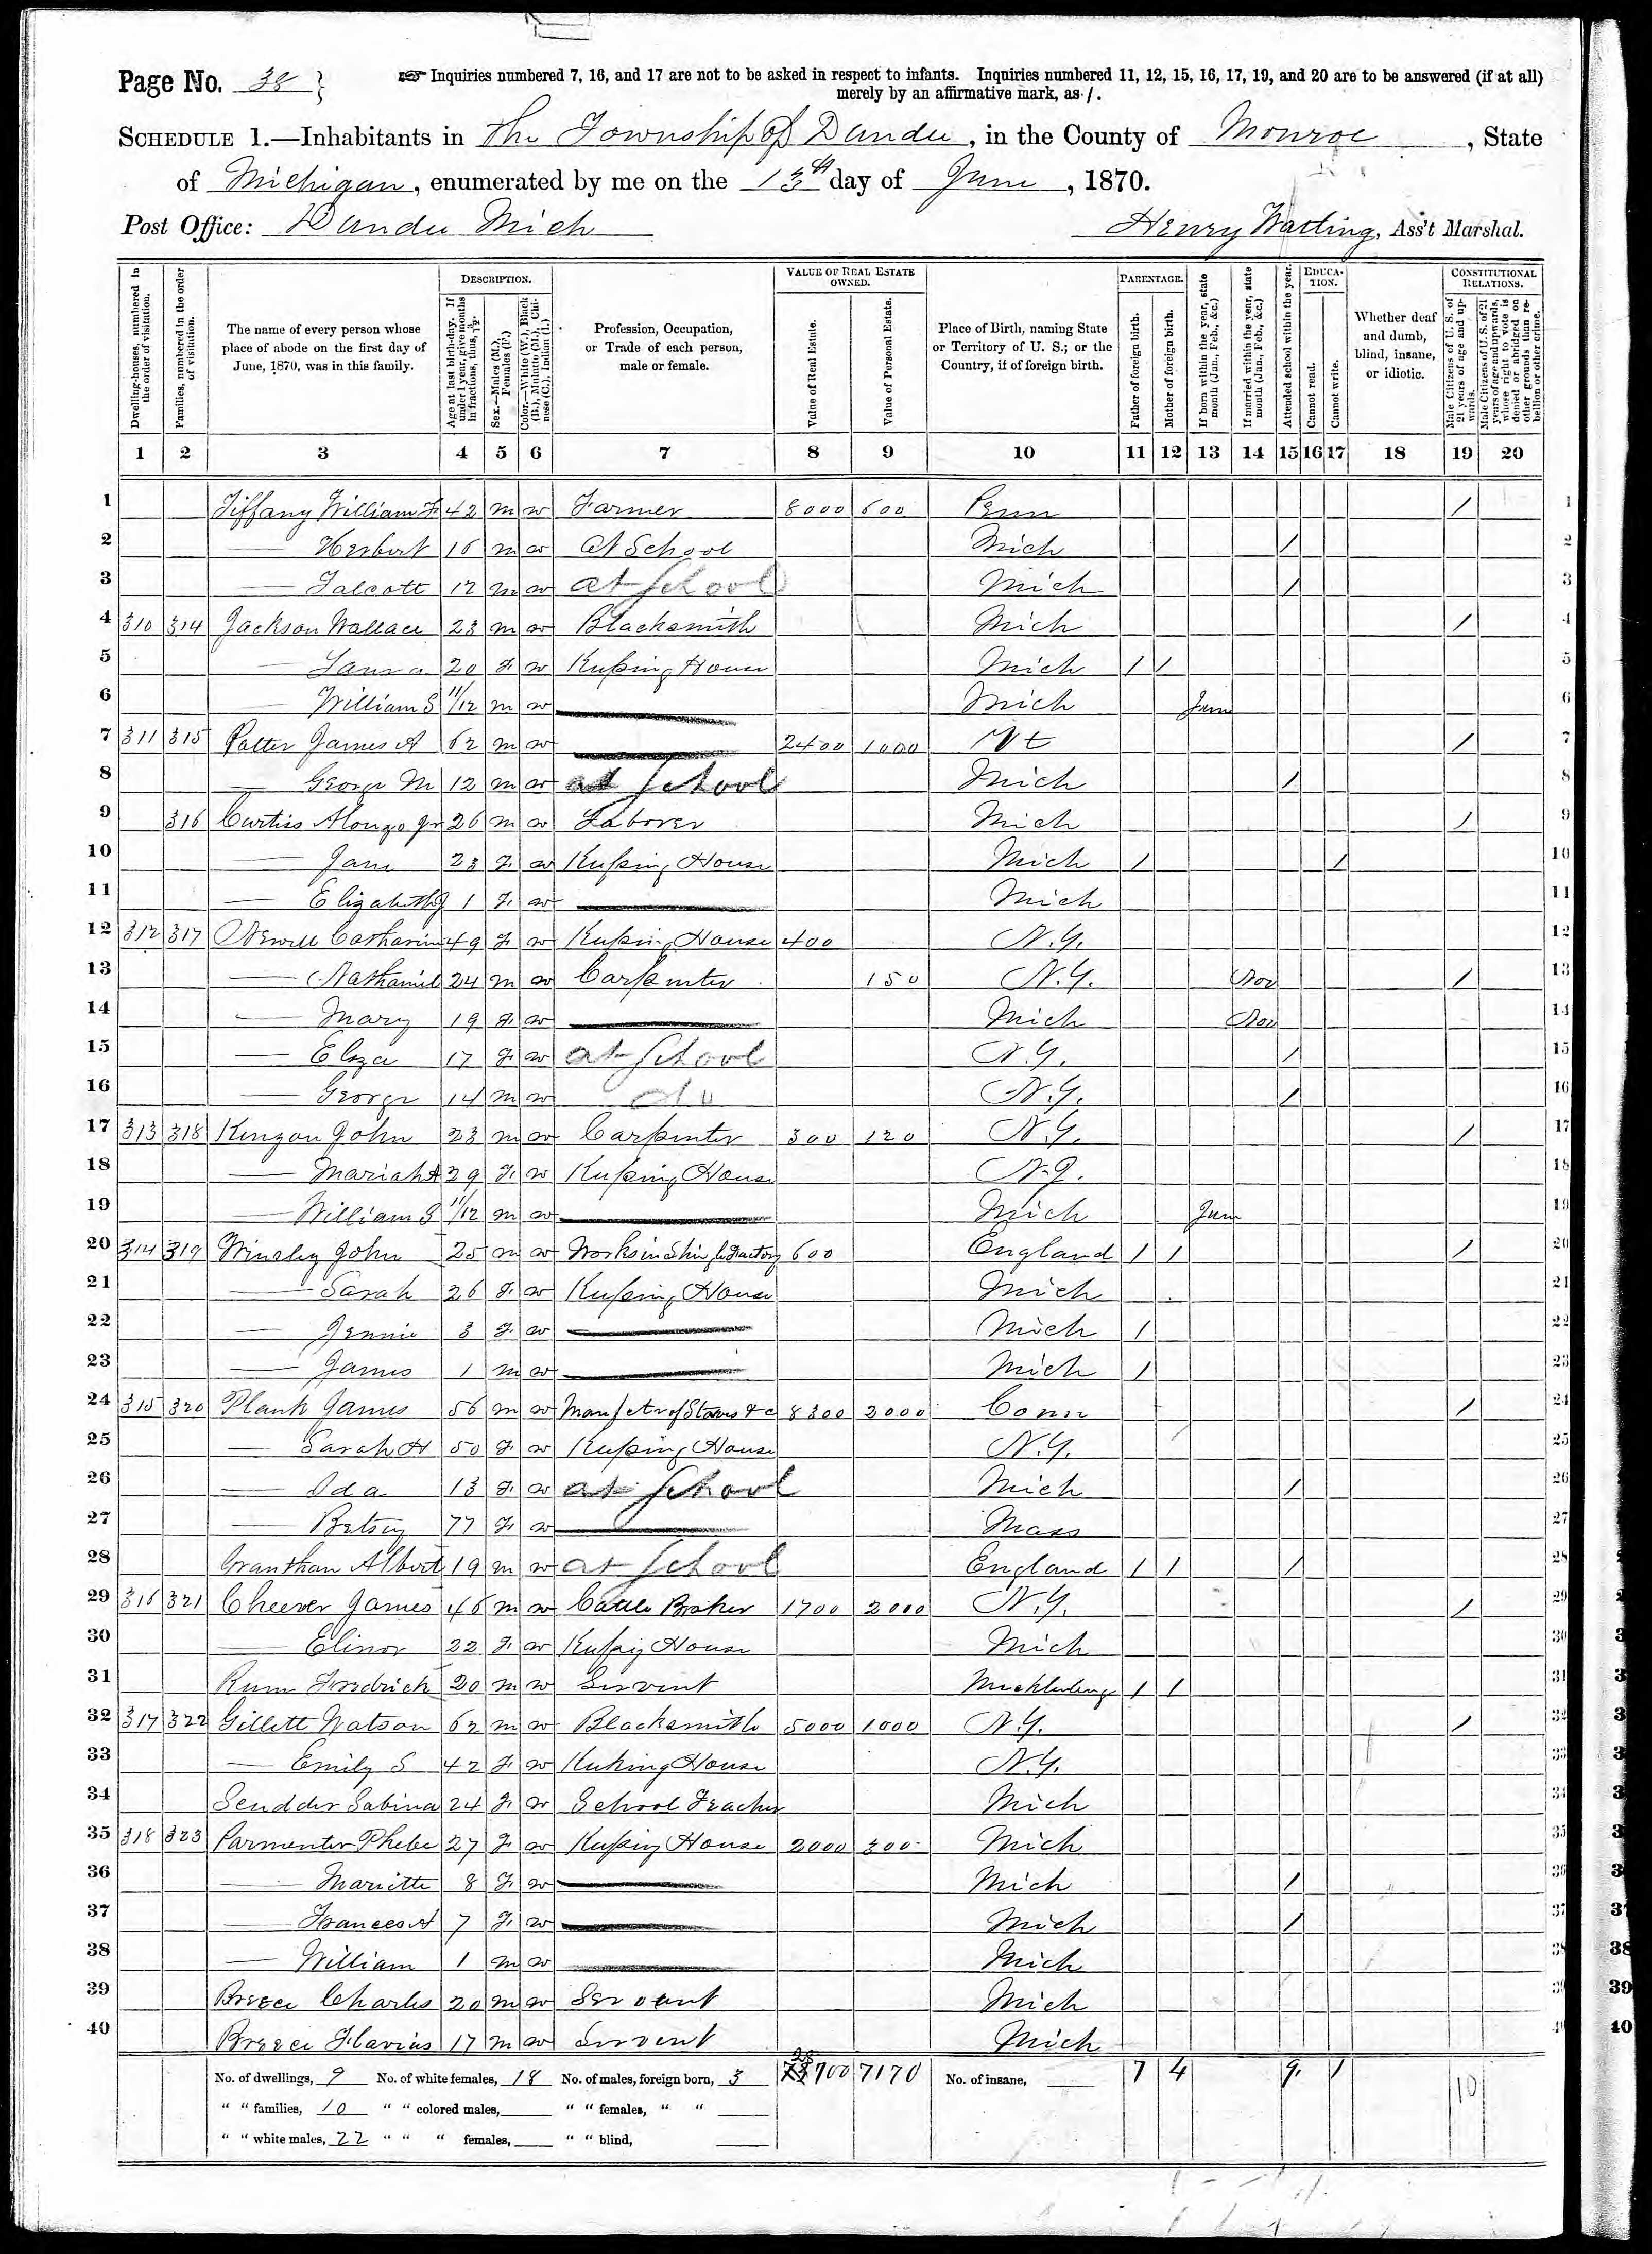 Page No. 38 } ☞ Inquiries numbered 7, 16, and 17 are not to be asked in respect to infants. Inquiries numbered 11, 12, 15, 16, 17, 19, and 20 are to be answered (if at all)
merely by an affirmative mark, as /.
SCHEDULE 1.—Inhabitants in The Township of Dundee, in the County of Monroe, State
of Michigan, enumerated by me on the 13th day of June, 1870.
Post Office: Dundee Mich Henry Watling, Ass't Marshal.
DESCRIPTION. VALUE OF REAL ESTATE OWNED. PARENTAGE. EDUCATION. CONSTITUTIONAL RELATIONS.
Dwelling-houses, numbered in the order of visitation.
Families, numbered in the order of visitation.
The name of every person whose place of abode on the first day of June, 1870, was in this family.
Age at last birth-day. If under 1 year, give months in fractions, thus, 3/12.
Sex.—Males (M.), Females (F.)
Color.—White (W.), Black (B.), Mulatto (M.), Chinese (C.), Indian (I.)
Profession, Occupation, or Trade of each person, male or female.
Value of Real Estate.
Value of Personal Estate.
Place of Birth, naming State or Territory of U. S.; or the Country, if of foreign birth.
Father of foreign birth.
Mother of foreign birth.
If born within the year, state month (Jan., Feb., &c.)
If married within the year, state month (Jan., Feb., &c.)
Attended school within the year.
Cannot read.
Cannot write.
Whether deaf and dumb, blind, insane, or idiotic.
Male Citizens of U. S. of 21 years of age and upwards.
Male Citizens of U. S. of 21 years of age and upwards, whose right to vote is denied or abridged on other grounds than rebellion or other crime.
1 2 3 4 5 6 7 8 9 10 11 12 13 14 15 16 17 18 19 20
1 Tiffany William F 42 m w Farmer 8000 600 Penn / 1
2 — Herbert 16 m w At School Mich / 2
3 — Talcott 12 m w at School Mich / 3
4 310 314 Jackson Wallace 23 m w Blacksmith Mich / 4
5 — Laura 20 F w Keeping House Mich / / 5
6 — William S 11/12 m w Mich June 6
7 311 315 Potter James A 62 m w 2400 1000 Vt / 7
8 — George M 12 m w at School Mich / 8
9 316 Curtiss Alonzo Jr 26 m w Laborer Mich / 9
10 — Jane 23 F w Keeping House Mich / / 10
11 — Elizabeth J 1 F w Mich 11
12 312 317 Newell Catharine 49 F w Keeping House 400 N.Y. 12
13 — Nathaniel 24 m w Carpenter 150 N.Y. Nov / 13
14 — Mary 19 F w Mich Nov 14
15 — Eliza 17 F w at School N.Y. / 15
16 — George 14 m w do N.Y. / 16
17 313 318 Kenyon John 23 m w Carpenter 300 120 N.Y. / 17
18 — Mariah A 29 F w Keeping House N.Y. 18
19 — William S 11/12 m w Mich June 19
20 314 319 Winsley John 25 m w Works in Shingle Factory 600 England / / / 20
21 — Sarah 26 F w Keeping House Mich 21
22 — Jennie 3 F w Mich / 22
23 — James 1 m w Mich / 23
24 315 320 Plank James 56 m w Manfctr of Staves &c 8300 2000 Conn / 24
25 — Sarah H 50 F w Keeping House N.Y. 25
26 — Ida 13 F w at School Mich / 26
27 — Betsey 77 F w Mass 27
28 Granthan Albert 19 m w at School England / / / 28
29 316 321 Cheever James 46 m w Cattle Broker 1700 2000 N.Y. / 29
30 — Elinor 22 F w Keeping House Mich 30
31 Fredrick 20 m w Servent / / 31
32 317 322 Gillett Watson 62 m w Blacksmith 5000 1000 N.Y. / 32
33 — Emily S 42 F w Keeping House N.Y. 33
34 Scudder Sabina 24 F w School Teacher Mich 34
35 318 323 Parmenter Phebe 27 F w Keeping House 2000 300 Mich 35
36 — Mariette 8 F w Mich / 36
37 — Frances A 7 F w Mich / 37
38 — William 1 m w Mich 38
39 Breece Charles 20 m w Servant Mich 39
40 Breece Flavius 17 m w Servent Mich 40
No. of dwellings, 9 No. of white females, 18 No. of males, foreign born, 3 28700 7170 No. of insane, 7 4 9 1 10
" " families, 10 " " colored males, " " females, " "
" " white males, 22 " " " females, " " blind,